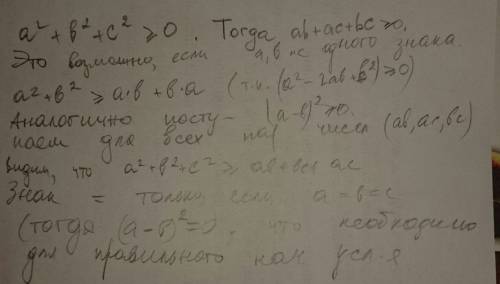 a² + b² + c² ≥ 0. Тогда ab+ac+bc ≥ 0,
Это возможно, если a, b и c одного знака.
a² + b² ≥ a·b + b·a (т.к. (a² - 2ab + b²) ≥ 0)
(a-b)² ≥ 0.
Аналогично посту-
паем для всех пар чисел (ab, ac, bc)
видим, что a² + b² + c² ≥ ab + bc + ac
Знак = только если a = b = c
(тогда (a-b)² = 0, что необходимо
для правильного нам усл-я